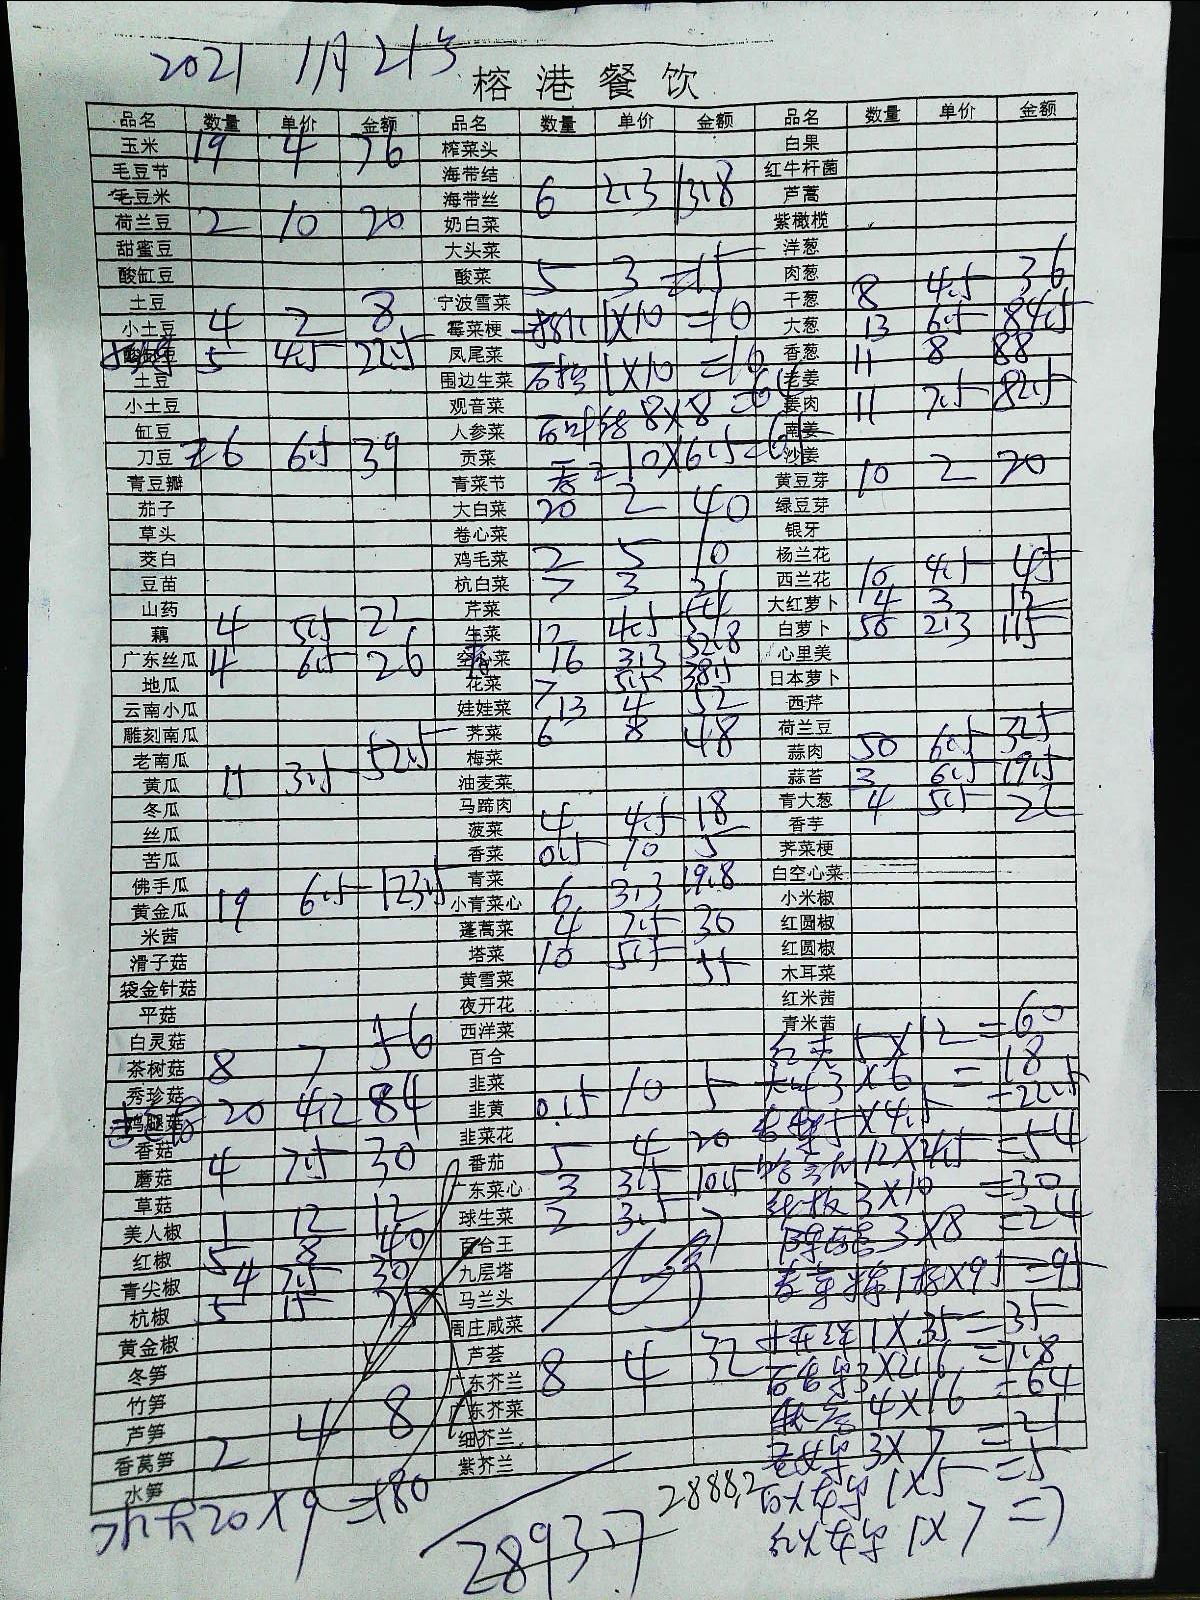 2021 1月21号
榕港餐饮
品名 数量 单价 金额 品名 数量 单价 金额 品名 数量 单价 金额
玉米 19 4 76 榨菜头 白果
毛豆节 海带结 红牛杆菌
毛豆米 海带丝 6 2.3 13.8 芦蒿
荷兰豆 2 10 20 奶白菜 紫橄榄
甜蜜豆 大头菜 洋葱
酸缸豆 酸菜 5 3 =15 肉葱 8 4.5 36
土豆 宁波雪菜 干葱
小土豆 4 2 8 霉菜梗 1X10 =10 大葱 13 6.5 84.5
5 4.5 22.5 凤尾菜 1X10 =10 香葱 11 8 88
土豆 围边生菜 老姜
小土豆 观音菜 8X8 =64 姜肉 11 7.5 82.5
缸豆 人参菜 10X6.5=65 南姜
刀豆 6 6.5 39 贡菜 沙姜
青豆瓣 青菜节 黄豆芽 10 2 20
茄子 大白菜 20 2 40 绿豆芽
草头 卷心菜 银牙
茭白 鸡毛菜 2 5 10 杨兰花
豆苗 杭白菜 7 3 21 西兰花 10 4.5 45
山药 芹菜 大红萝卜 4 3 12
藕 4 5.5 22 生菜 12 4.5 54 白萝卜 50 2.3 115
广东丝瓜 4 6.5 26 空心菜 16 3.3 52.8 心里美
地瓜 花菜 7 5.5 38.5 日本萝卜
云南小瓜 娃娃菜 13 4 52 西芹
雕刻南瓜 荠菜 6 8 48 荷兰豆
老南瓜 梅菜 蒜肉 50 6.5 325
黄瓜 15 3.5 52.5 油麦菜 蒜苔 3 6.5 19.5
冬瓜 马蹄肉 青大葱 4 5.5 22
丝瓜 菠菜 4 4.5 18 香芋
苦瓜 香菜 0.5 10 5 荠菜梗
佛手瓜 青菜 白空心菜
黄金瓜 19 6.5 123.5 小青菜心 6 3.3 19.8 小米椒
米茜 蓬蒿菜 4 7.5 30 红圆椒
滑子菇 塔菜 10 5.5 55 红圆椒
袋金针菇 黄雪菜 木耳菜
平菇 夜开花 红米茜
白灵菇 西洋菜 青米茜
茶树菇 8 7 56 百合 5X12=60
秀珍菇 韭菜 3X6 =18
鸡腿菇 20 4.2 84 韭黄 0.5 10 5 5X4.5 =22.5
香菇 韭菜花 12X4.5=54
蘑菇 4 7.5 30 番茄 5 4 20 3X10 =30
草菇 广东菜心 3 3.5 10.5 3X8 =24
美人椒 1 12 12 球生菜 2 3.5 7
红椒 5 8 40 百合王
青尖椒 4 7.5 30 九层塔 X95 =95
杭椒 5 15 75 马兰头
黄金椒 周庄咸菜 1X35=35
冬笋 芦荟 3X2.6=7.8
竹笋 广东芥兰 8 4 32 4X16 =64
芦笋 广东芥菜 3X7 =21
香莴笋 2 4 8 细芥兰 1X5 =5
水笋 紫芥兰 1X7=7
20X9=180 2888.2
2893.7